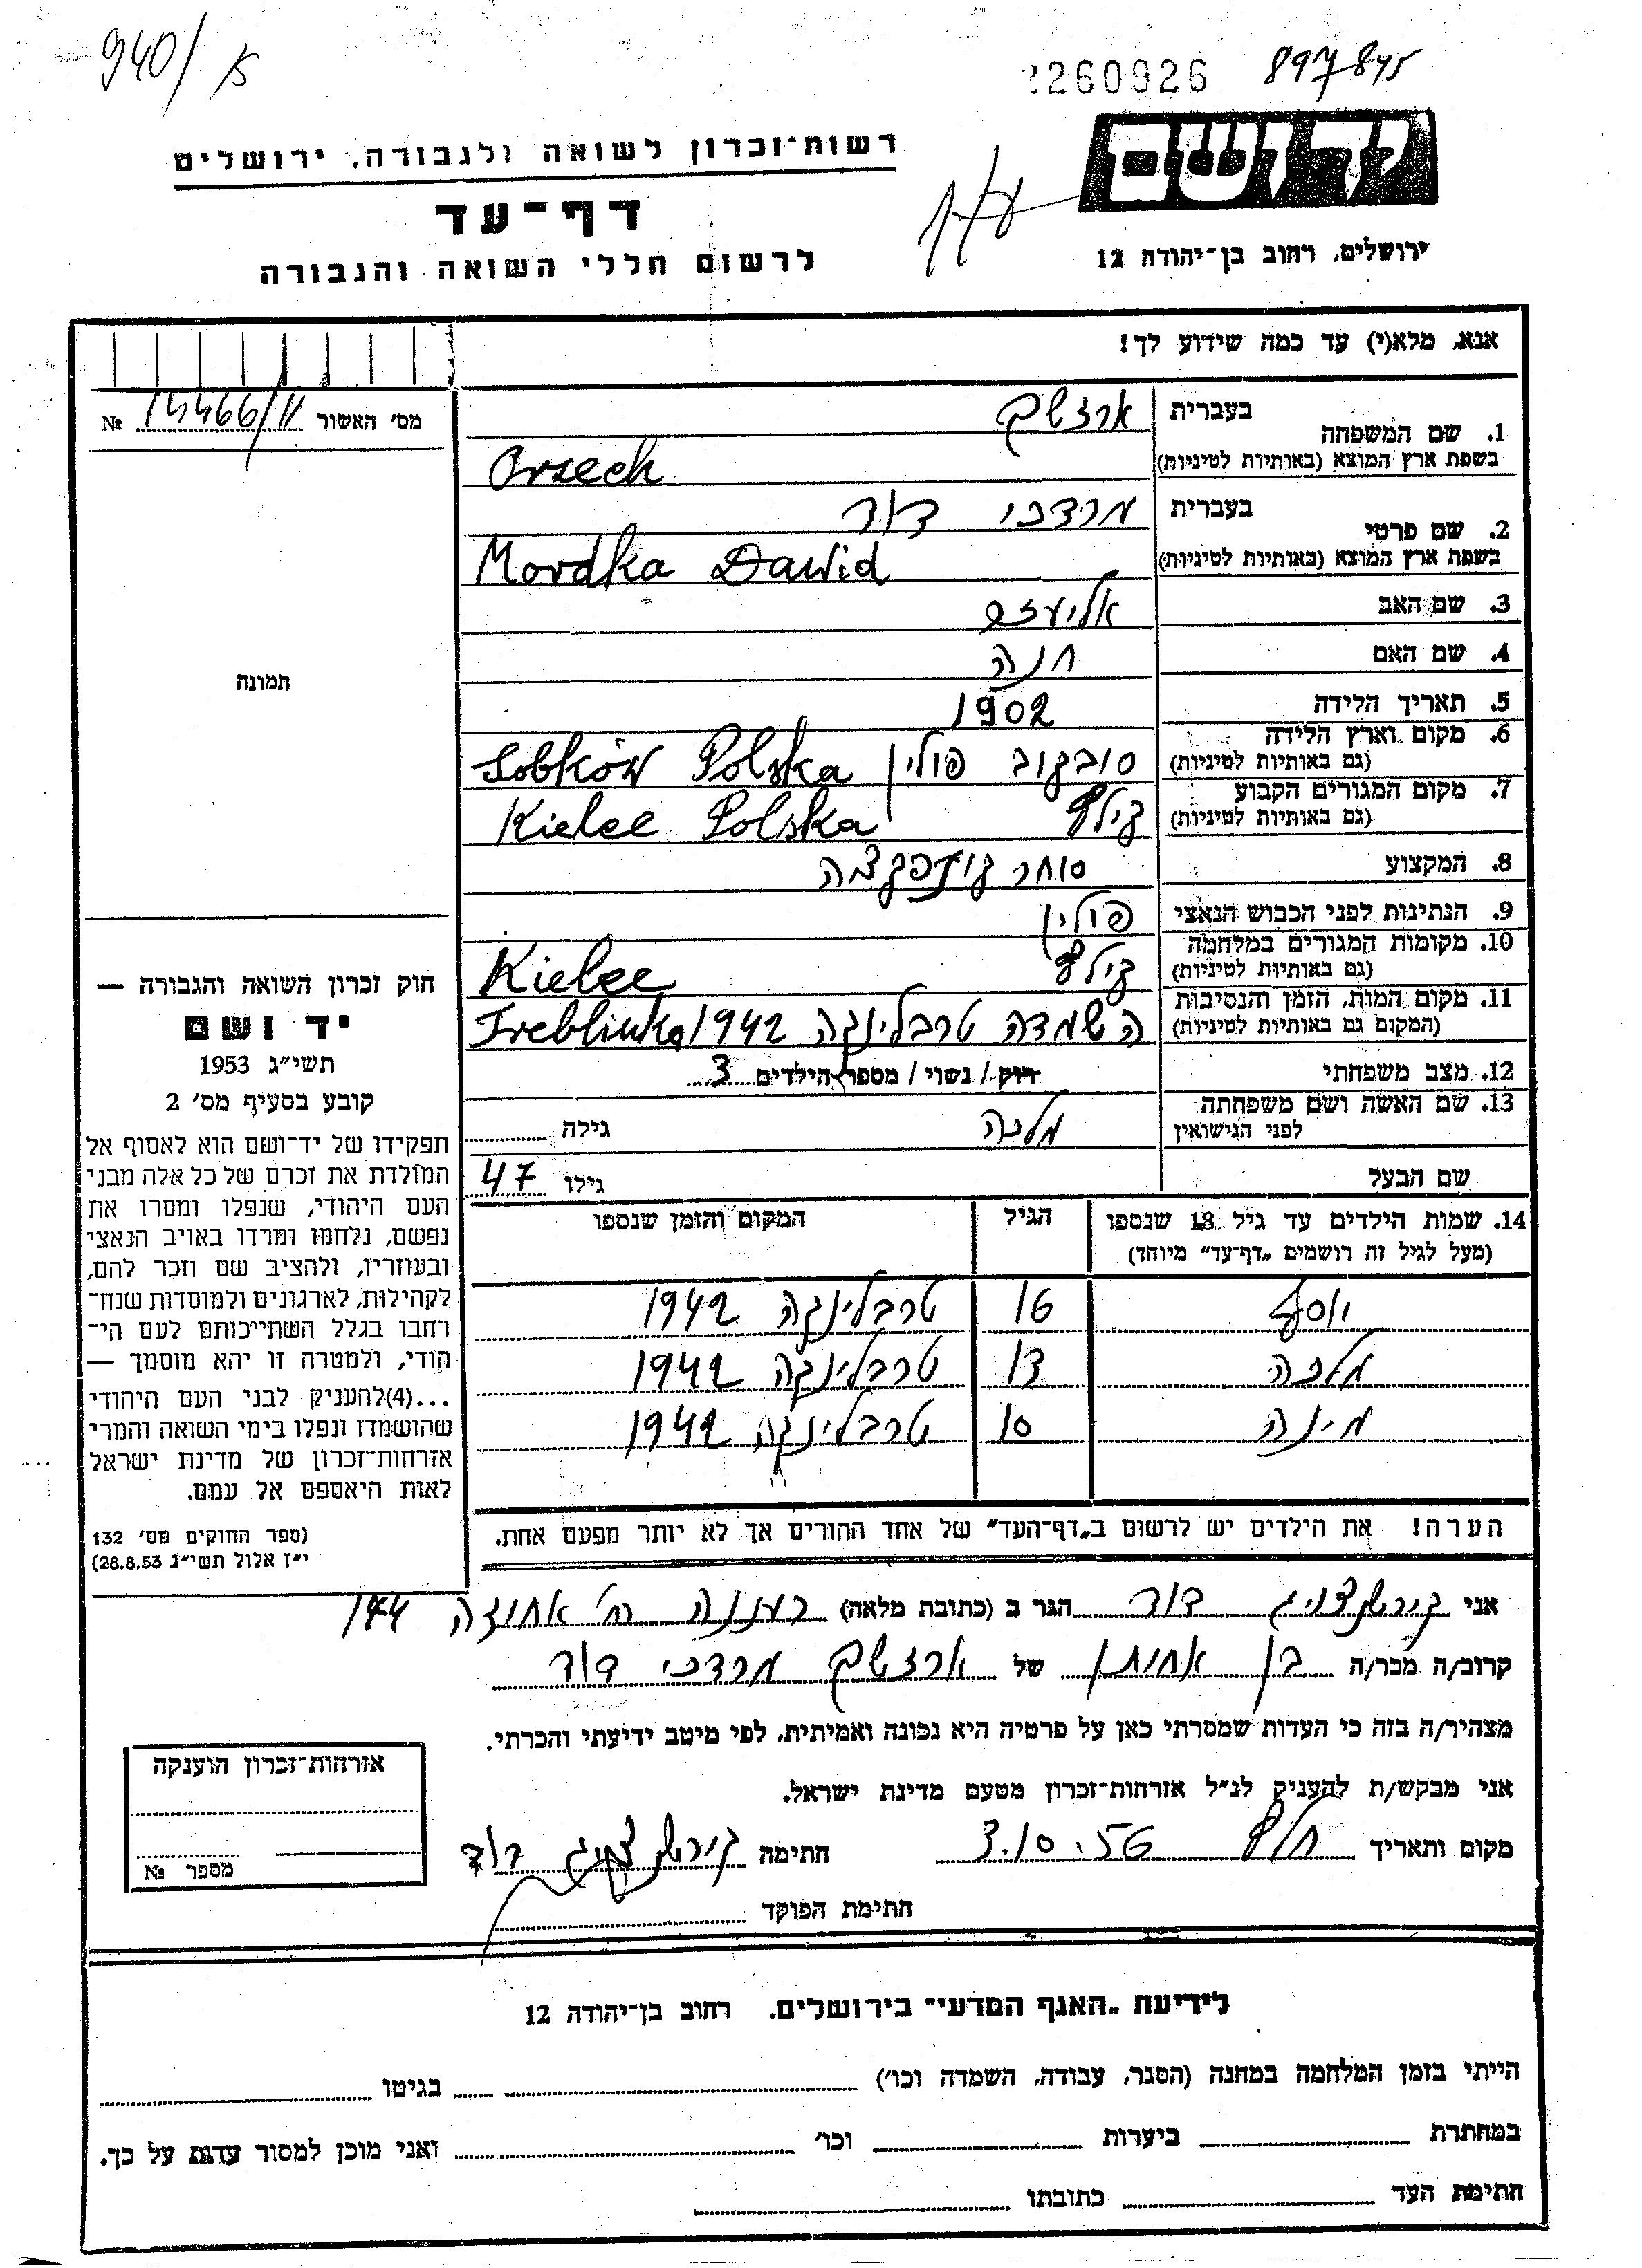 940/
2260926 897845
יד ושם
רשות־זכרון לשואה ולגבורה, ירושלים
דף־עד
ירושלים, רחוב בן־יהודה 12
לרשום חללי השואה והגבורה
אנא, מלא(י) עד כמה שידוע לך!
מס' האשור № 14466/11
תמונה
1. שם המשפחה בעברית ארזשך
בשפת ארץ המוצא (באותיות לטיניות) Orzech
2. שם פרטי בעברית מרדכי דוד
בשפת ארץ המוצא (באותיות לטיניות) Mordka Dawid
3. שם האב אליעזר
4. שם האם חנה
5. תאריך הלידה 1902
6. מקום וארץ הלידה סובקוב פולין Sobków Polska
(גם באותיות לטיניות)
7. מקום המגורים הקבוע קילץ Kielce Polska
(גם באותיות לטיניות)
8. המקצוע סוחר קונפקציה
9. הנתינות לפני הכבוש הנאצי פולין
10. מקומות המגורים במלחמה קילץ Kielce
(גם באותיות לטיניות)
11. מקום המות, הזמן והנסיבות השמדה טרבלינקה 1942 Treblinka
(המקום גם באותיות לטיניות)
12. מצב משפחתי רוק / נשוי / מספר הילדים 3
13. שם האשה ושם משפחתה מלכה גילה
לפני הנישואין
שם הבעל גילו 47
14. שמות הילדים עד גיל 18 שנספו הגיל המקום והזמן שנספו
(מעל לגיל זה רושמים „דף־עד" מיוחד)
יוסף 16 טרבלינקה 1942
מלכה 13 טרבלינקה 1942
מינה 10 טרבלינקה 1942
הערה! את הילדים יש לרשום ב„דף־העד" של אחד ההורים אך לא יותר מפעם אחת.
חוק זכרון השואה והגבורה —
יד ושם
תשי״ג 1953
קובע בסעיף מס' 2
תפקידו של יד־ושם הוא לאסוף אל
המולדת את זכרם של כל אלה מבני
העם היהודי, שנפלו ומסרו את
נפשם, נלחמו ומרדו באויב הנאצי
ובעוזריו, ולהציב שם וזכר להם,
לקהילות, לארגונים ולמוסדות שנח־
רחבו בגלל השתייכותם לעם הי־
הודי, ולמטרה זו יהא מוסמך —
...(4)להעניק לבני העם היהודי
שהושמדו ונפלו בימי השואה והמרי
אזרחות־זכרון של מדינת ישראל
לאות היאספם אל עמם.
(ספר החוקים מס' 132
י״ז אלול תשי״ג 28.8.53)
אני קירשנצויג דוד הגר ב (כתובת מלאה) רעננה רח' אחוזה 144
קרוב/ה מכר/ה בן אחותו של ארזשך מרדכי דוד
מצהיר/ה בזה כי העדות שמסרתי כאן על פרטיה היא נכונה ואמיתית, לפי מיטב ידיעתי והכרתי.
אני מבקש/ת להעניק לנ״ל אזרחות־זכרון מטעם מדינת ישראל.
מקום ותאריך 3.10.56 חתימה קירשנצויג דוד
חתימת הפוקד
אזרחות־זכרון הוענקה
מספר №
לידיעת „האגף המדעי" בירושלים. רחוב בן־יהודה 12
הייתי בזמן המלחמה במחנה (הסגר, עבודה, השמדה וכו') בגיטו
במחתרת ביערות וכו' ואני מוכן למסור עדות על כך.
חתימת העד כתובתו